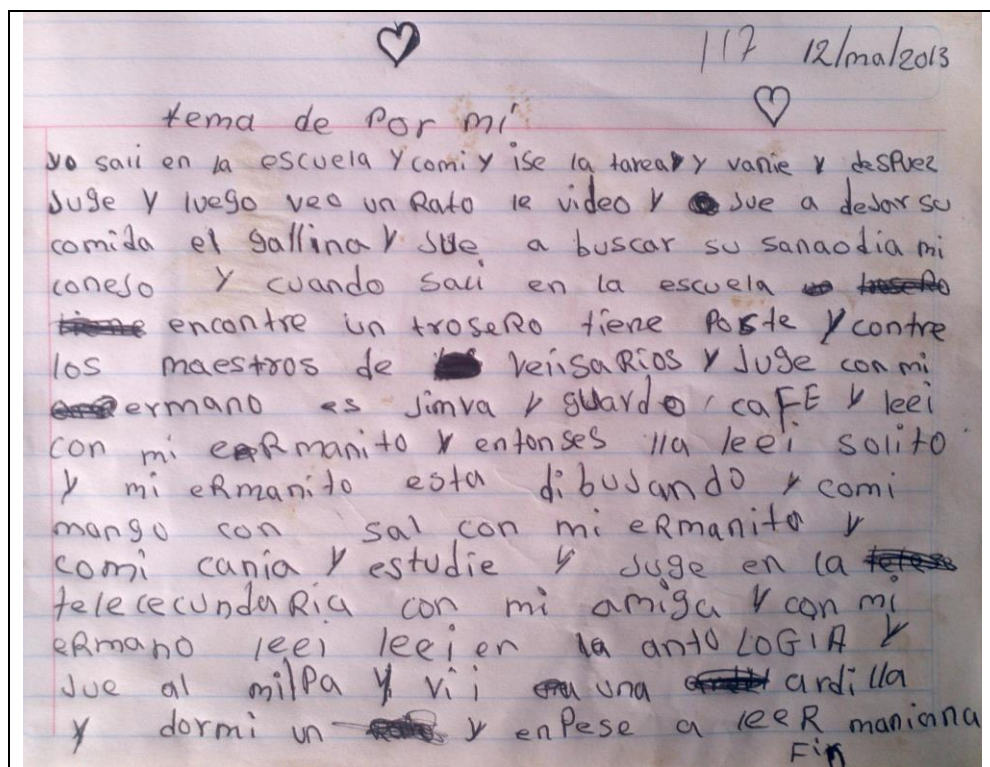 117 12/ma/2013
tema de Por mí
yo sali en la escuela y comi y ise la tarea y vanie y desPuez
Juge y luego veo un Rato le video y Jue a deJar su
comida el gallina y Jue a buscar su sanaodia mi
coneJo y cuando sali en la escuela
encontre un troseRo tiene Poste y contre
los maestros de veiisaRios y Juge con mi
ermano es Jimva y guardo caFE y leei
con mi eRmanito y entonses lla leei solito
y mi eRmanito esta dibuJando y comi
mango con sal con mi eRmanito y
comi cania y estudie y Juge en la
telececundaRia con mi amiga y con mi
eRmano leei leei en la antoLOGIA y
Jue al milPa y vii una ardilla
y dormi un y enPese a leeR maniana
Fin